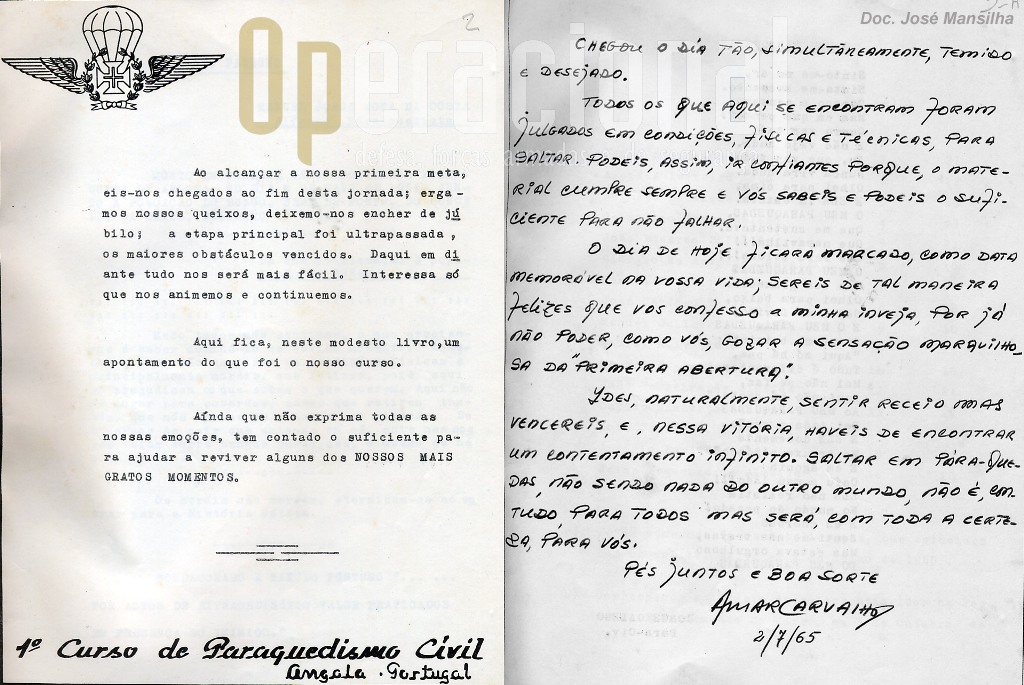 2
Operacional
Ao alcançar a nossa primeira meta,
eis-nos chegados ao fim desta jornada; erga-
mos nossos queixos, deixemo-nos encher de jú
bilo; a etapa principal foi ultrapassada,
os maiores obstáculos vencidos. Daqui em di
ante tudo nos será mais fácil. Interessa só
que nos animemos e continuemos.
Aqui fica, neste modesto livro,um
apontamento do que foi o nosso curso.
Aínda que não exprima todas as
nossas emoções, tem contado o suficiente pa-
ra ajudar a reviver alguns dos NOSSOS MAIS
GRATOS MOMENTOS.
1º Curso de Paraquedismo Cívil
Angola . Portugal
Doc. José Mansilha
CHEGOU O DIA TÃO, SIMULTÂNEAMENTE, TEMIDO
E DESEJADO.
TODOS OS QUE AQUI SE ENCONTRAM FORAM
JULGADOS EM CONDIÇÕES, FISICAS E TÉCNICAS, PARA
SALTAR. PODEIS, ASSIM, IR CONFIANTES PORQUE, O MATE-
RIAL CUMPRE SEMPRE E VÓS SABEIS E PODEIS O SUFI-
CIENTE PARA NÃO FALHAR.
O DIA DE HOJE FICARA MARCADO, COMO DATA
MEMORÁVEL NA VOSSA VIDA; SEREIS DE TAL MANEIRA
FELIZES QUE VOS CONFESSO A MINHA INVEJA, POR JÁ
NÃO PODER, COMO VÓS, GOZAR A SENSAÇÃO MARAVILHO-
SA DA "PRIMEIRA ABERTURA".
IDES, NATURALMENTE, SENTIR RECEIO MAS
VENCEREIS, E, NESSA VITÓRIA, HAVEIS DE ENCONTRAR
UM CONTENTAMENTO INFINITO. SALTAR EM PÁRA-QUE-
DAS, NÃO SENDO NADA DO OUTRO MUNDO, NÃO É, CON-
TUDO, PARA TODOS MAS SERÁ, COM TODA A CERTE-
ZA, PARA VÓS.
PÉS JUNTOS E BOA SORTE
AMARCARVALHO
2/7/65